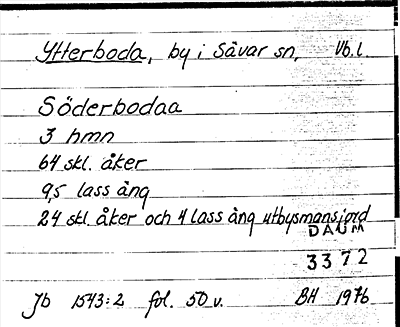 Ytterboda, by i Sävar sn, Vb.l.
Söderbodaa
3 hmn
64 skl. åker
9,5 lass äng
24 skl. åker och 4 lass äng utbysmansjord
DAUM
3372
Jb 1543:2 fol. 50 v. BH 1976